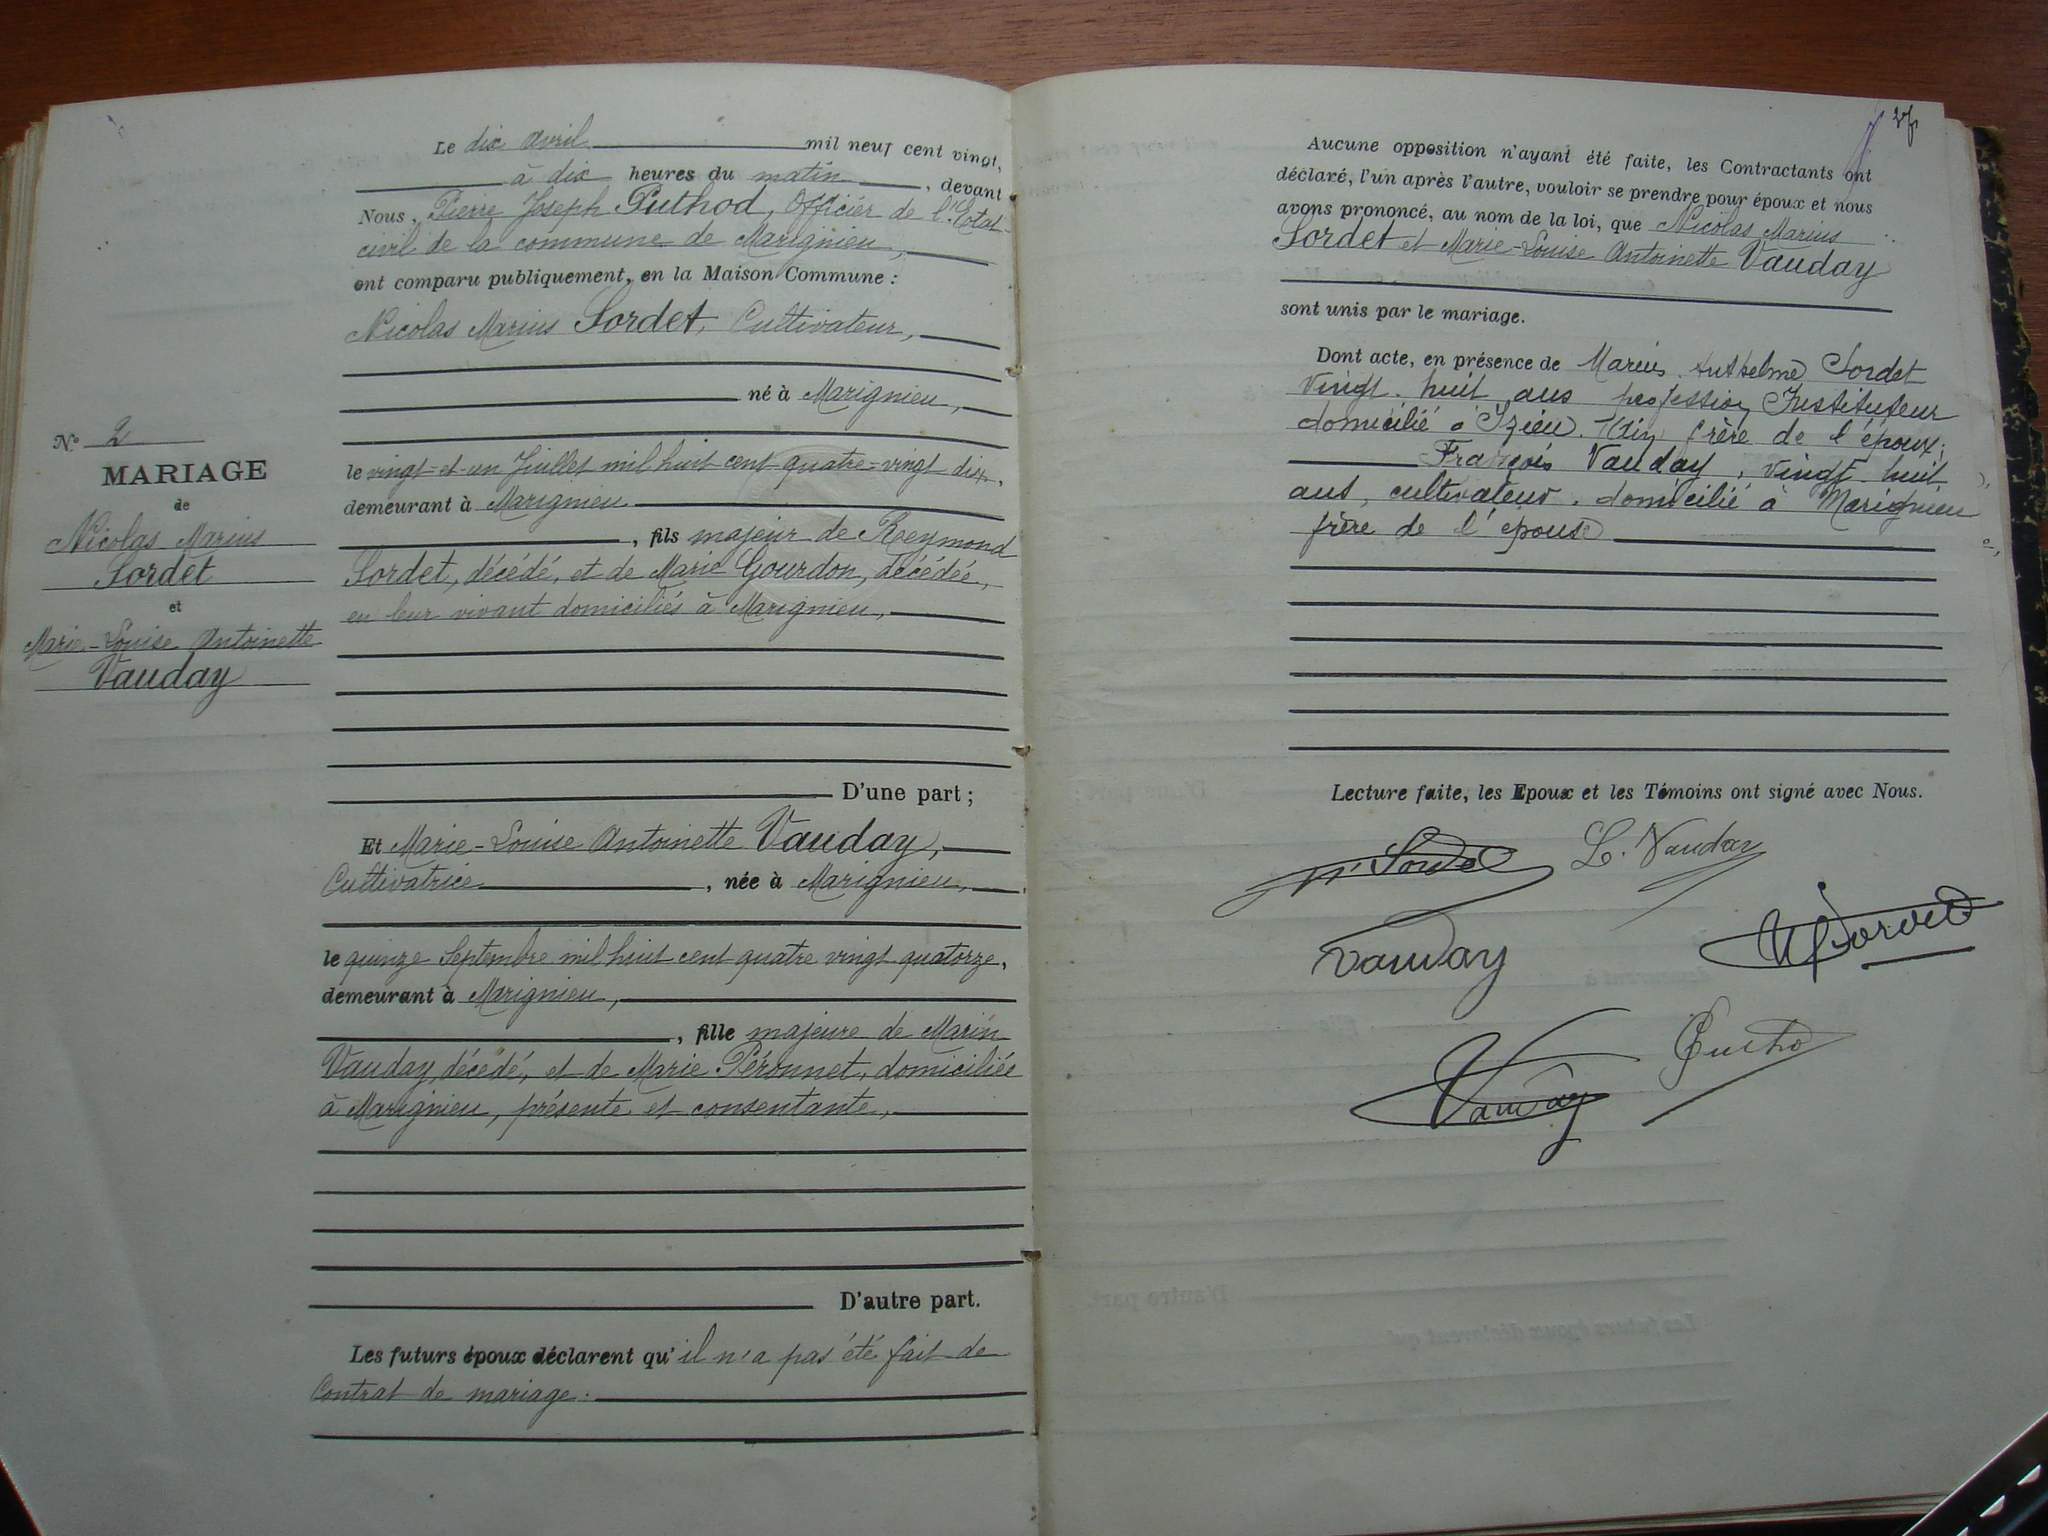 N° 2
MARIAGE
de
Nicolas Marius
Sordet
et
Marie-Louise Antoinette
Vauday
Le dix avril mil neuf cent vingt,
à dix heures du matin, devant
Nous, Pierre Joseph Puthod, Officier de l'Etat-
civil de la commune de Marignieu,
ont comparu publiquement, en la Maison Commune :
Nicolas Marius Sordet, Cultivateur,
né à Marignieu,
le vingt-et-un Juillet mil huit cent quatre-vingt dix,
demeurant à Marignieu
, fils majeur de Reymond
Sordet, décédé, et de Marie Gourdon, décédée,
en leur vivant domiciliés à Marignieu,
D'une part ;
Et Marie-Louise Antoinette Vauday,
Cultivatrice, née à Marignieu,
le quinze Septembre mil huit cent quatre vingt quatorze,
demeurant à Marignieu,
, fille majeure de Marin
Vauday, décédé, et de Marie Péronnet, domiciliée
à Marignieu, présente et consentante,
D'autre part.
Les futurs époux déclarent qu'il n'a pas été fait de
Contrat de mariage.
27
Aucune opposition n'ayant été faite, les Contractants ont
déclaré, l'un après l'autre, vouloir se prendre pour époux et nous
avons prononcé, au nom de la loi, que Nicolas Marius
Sordet et Marie-Louise Antoinette Vauday
sont unis par le mariage.
Dont acte, en présence de Marius Anthelme Sordet
vingt-huit ans profession Instituteur
domicilié à Izieu. Ain, frère de l'époux;
François Vauday, vingt-huit
ans, cultivateur, domicilié à Marignieu
frère de l'épouse
Lecture faite, les Epoux et les Témoins ont signé avec Nous.
N. Sordet L. Vauday
Vauday Sordet
Vauday